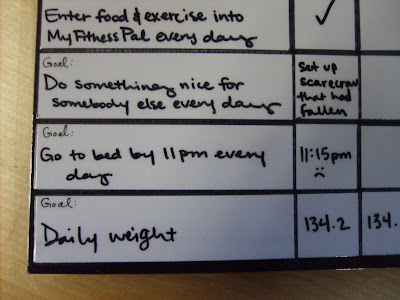 Enter food & exercise into
MyFitnessPal every day
✓
Goal:
Do something nice for
somebody else every day
set up
scarecrow
that had
fallen
Goal:
Go to bed by 11pm every
day
11:15pm
☹
Goal:
Daily weight
134.2
134.